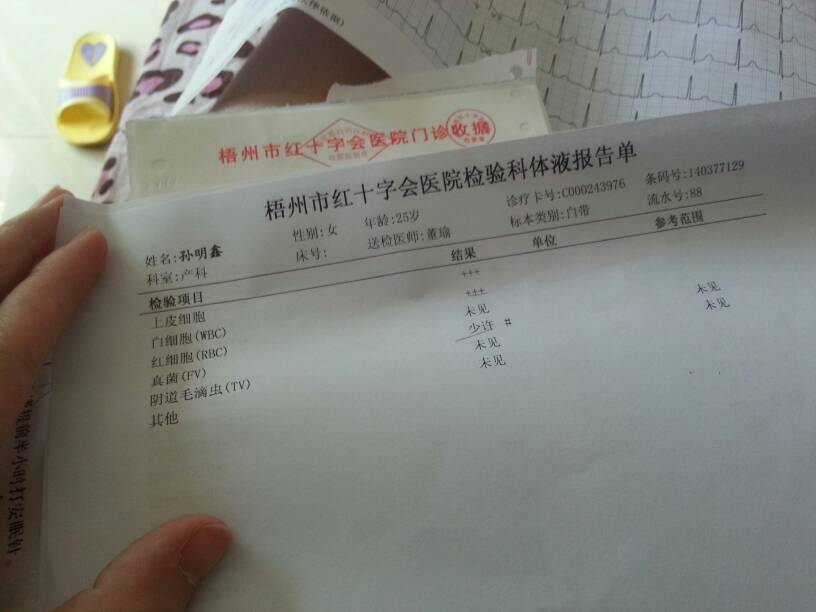 梧州市红十字会医院门诊收据
梧州市红十字会医院检验科体液报告单
姓名:孙明鑫 性别:女 年龄:25岁 诊疗卡号:C000243976 条码号:140377129
科室:产科 床号: 送检医师:董瑜 标本类别:白带 流水号:88
检验项目 结果 单位 参考范围
上皮细胞 +++
白细胞(WBC) +++
红细胞(RBC) 未见 未见
真菌(FV) 少许 # 未见
阴道毛滴虫(TV) 未见
其他 未见
提前半小时打安眠针。